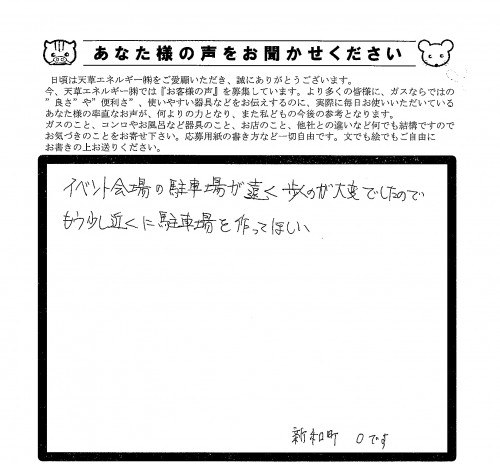 あなた様の声をお聞かせください
日頃は天草エネルギー㈱をご愛顧いただき、誠にありがとうございます。
今、天草エネルギー㈱では『お客様の声』を募集しています。より多くの皆様に、ガスならではの
”良さ”や”便利さ”、使いやすい器具などをお伝えするのに、実際に毎日お使いいただいている
あなた様の率直なお声が、何よりの力となり、また私どもの今後の参考となります。
ガスのこと、コンロやお風呂など器具のこと、お店のこと、他社との違いなど何でも結構ですので
お気づきのことをお寄せ下さい。応募用紙の書き方など一切自由です。文でも絵でもご自由に
お書きの上お送りください。
イベント会場の駐車場が遠く歩くのが大変でしたので
もう少し近くに駐車場を作ってほしい、
新和町 Oです